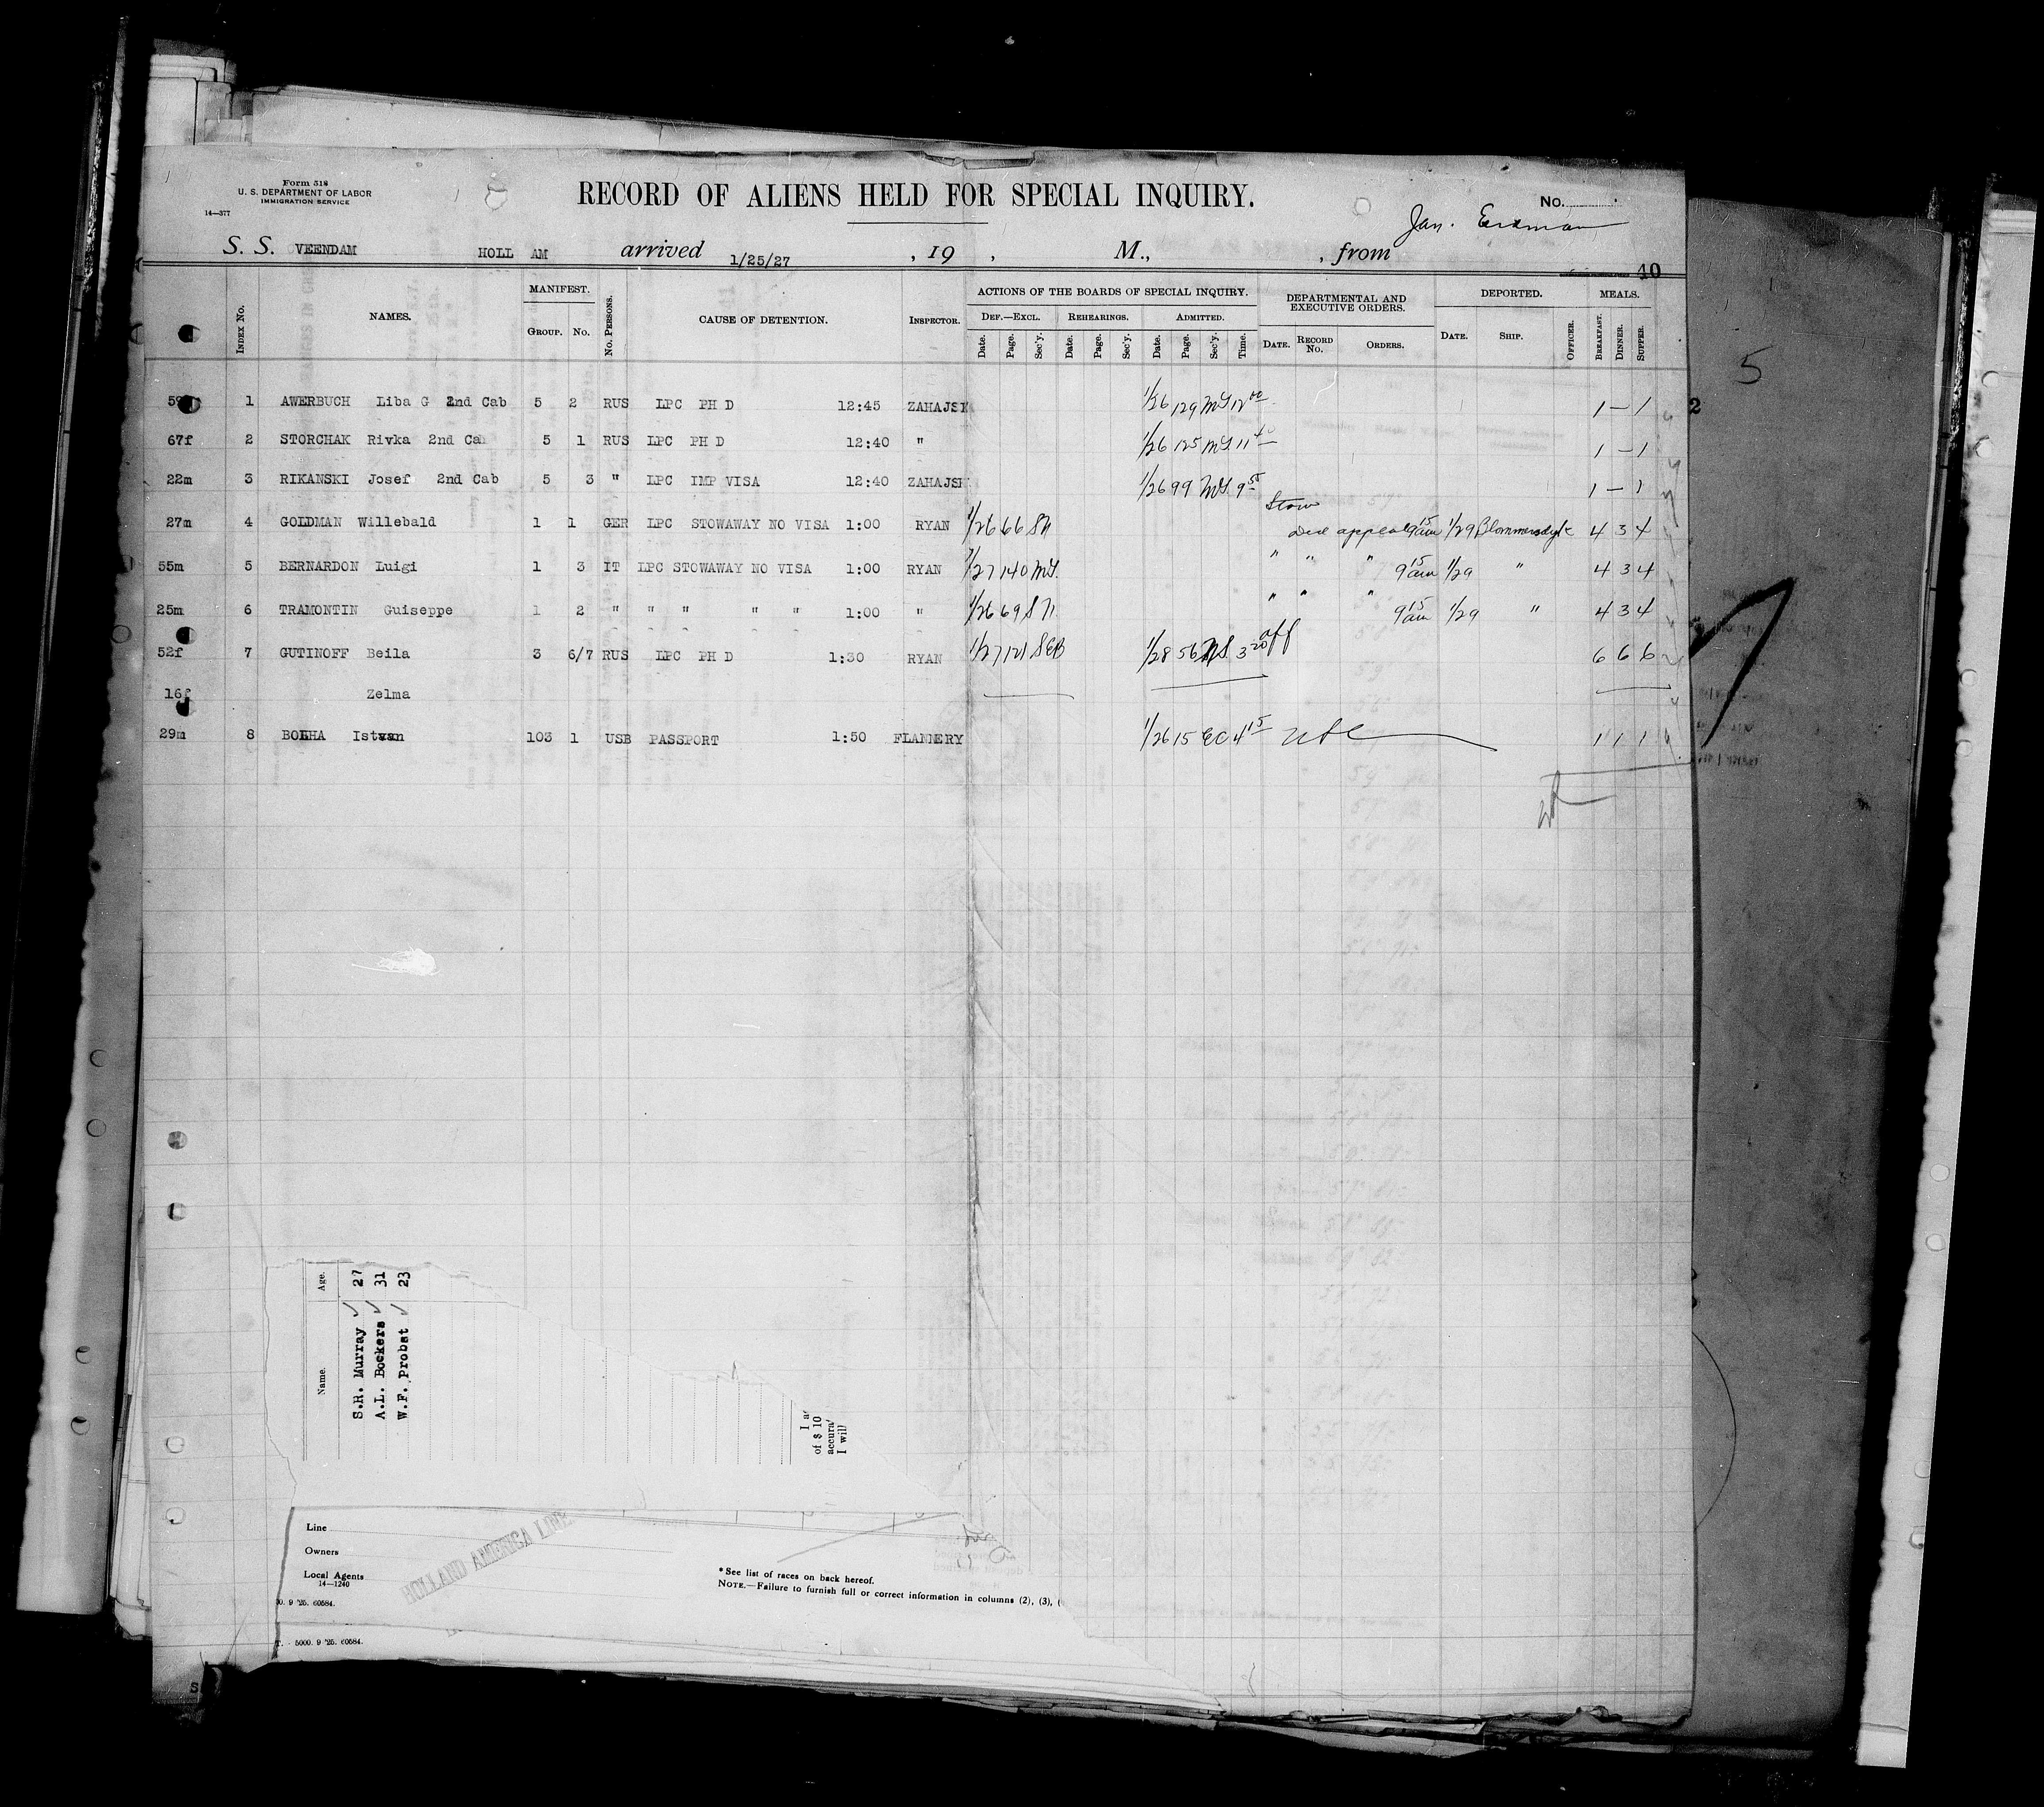 Form 518
U. S. DEPARTMENT OF LABOR
IMMIGRATION SERVICE
14—377
RECORD OF ALIENS HELD FOR SPECIAL INQUIRY.
No.
Jan.
S. S. VEENDAM HOLL AM arrived 1/25/27 , 19 , M., , from
40
Index No. NAMES. MANIFEST. Group. No. No. Persons. CAUSE OF DETENTION. Inspector. ACTIONS OF THE BOARDS OF SPECIAL INQUIRY. Def.—Excl. Rehearings. Admitted. Date. Page. Sec'y. Date. Page. Sec'y. Date. Page. Sec'y. Time. DEPARTMENTAL AND EXECUTIVE ORDERS. Date. Record No. Orders. DEPORTED. Date. Ship. Officer. MEALS. Breakfast. Dinner. Supper.
1 AWERBUCH Liba G 2nd Cab 5 2 RUS LPC PH D 12:45 ZAHAJSK 1/26 129 MY 12 00 1 — 1
67f 2 STORCHAK Rivka 2nd Ca 5 1 RUS LPC PH D 12:40 " 1/26 125 MY 11 1 — 1
22m 3 RIKANSKI Josef 2nd Cab 5 3 " LPC IMP VISA 12:40 ZAHAJSK 1/26 99 MY 9 55 1 — 1
Stow
27m 4 GOLDMAN Willebald 1 1 GER LPC STOWAWAY NO VISA 1:00 RYAN 1/26 66 SN appeal 9 15 am 1/29 Blommersdyk 4 3 4
55m 5 BERNARDON Luigi 1 3 IT LPC STOWAWAY NO VISA 1:00 RYAN 1/27 140 MY " " " 9 15 am 1/29 " 4 3 4
25m 6 TRAMONTIN Guiseppe 1 2 " " " " " 1:00 " 1/26 69 SN " " " 9 15 am 1/29 " 4 3 4
52f 7 GUTINOFF Beila 3 6/7 RUS LPC PH D 1:30 RYAN 1/27 121 SEB 1/28 56 3 20 off 6 6 6
16f Zelma
29m 8 BOLHA Istvan 103 1 USB PASSPORT 1:50 FLANNERY 1/26 15 EC 4 15 1 1 1
2
5
Name. Age.
S.R. Murray ✓ 27
A.L. Bockers ✓ 31
W.F. Probst ✓ 23
of $ 10
accura
I will
Line
Owners
Local Agents
HOLLAND AMERICA LINE
14—1240
* See list of races on back hereof.
NOTE.—Failure to furnish full or correct information in columns (2), (3), (
9 '25. 60584.
T. - 5000. 9 '25. 60584.